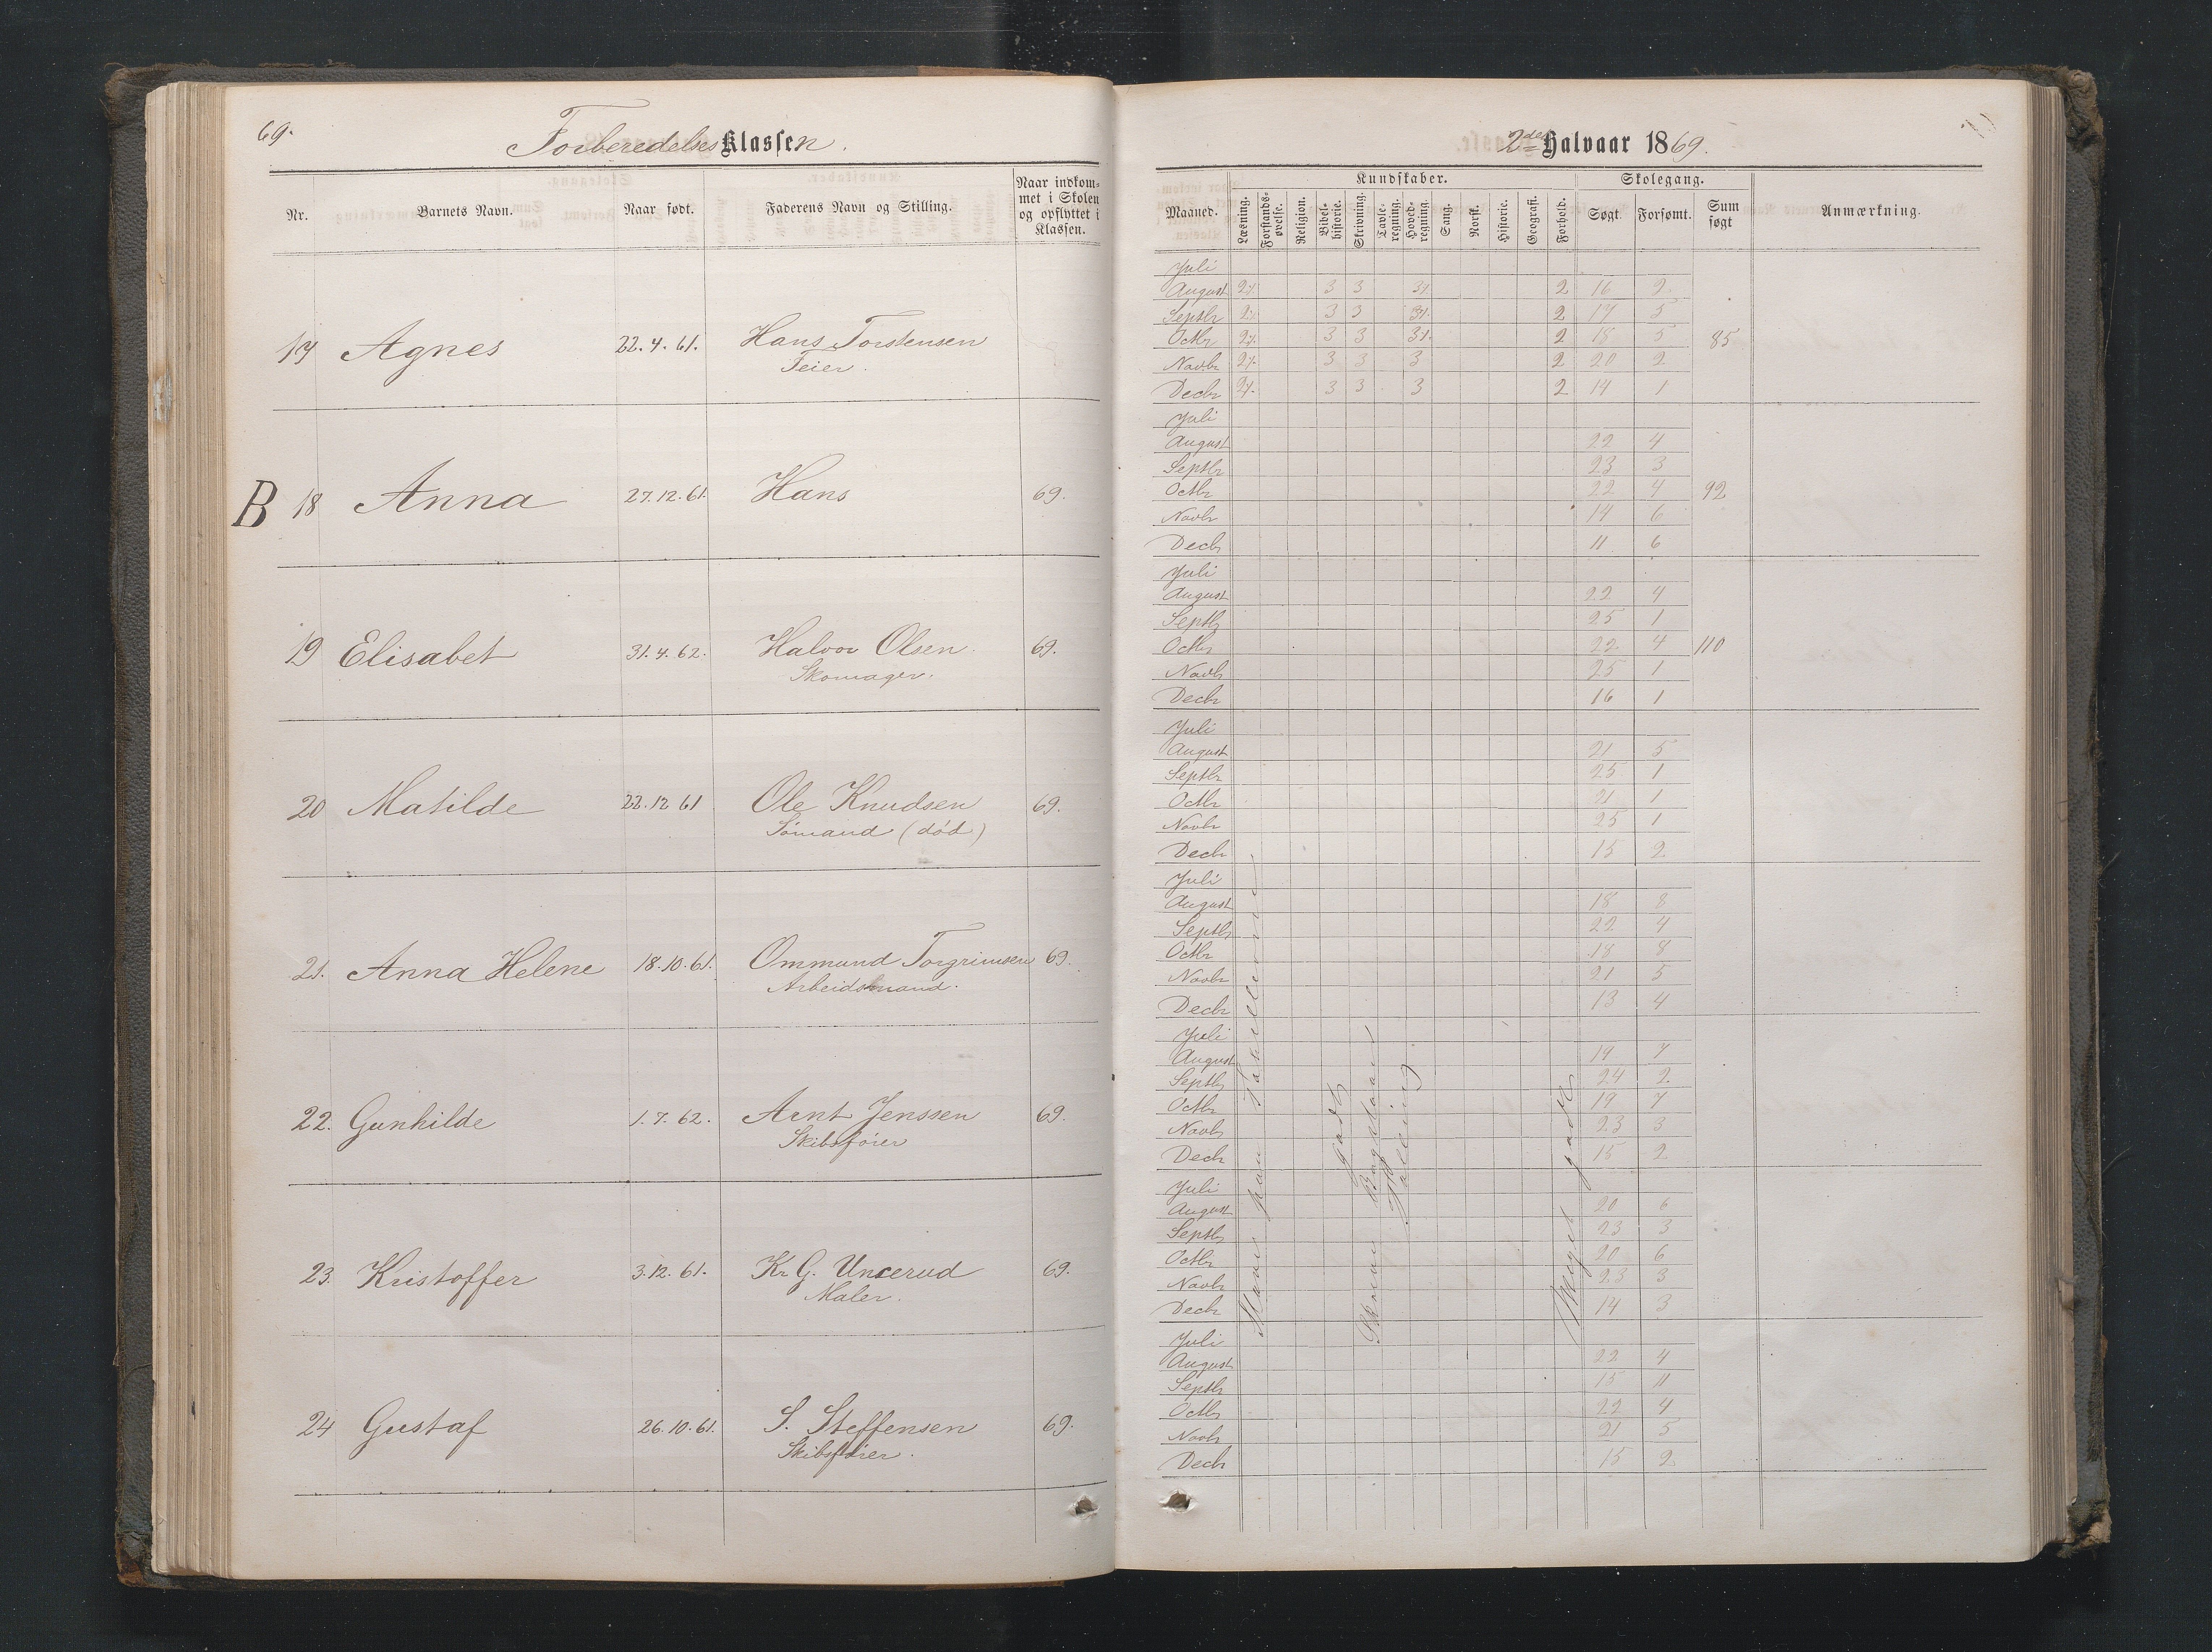 69.
Forberedelses Klassen.
Nr. Barnets Navn. Naar født. Faderens Navn og Stilling. Naar indkom-
met i Skolen
og opflyttet i
Klassen.
17 Agnes 22.4.61. Hans Torstensen
Feier.
B 18 Anna 27.12.61. Hans 69.
19 Elisabet 31.4.62. Halvor Olsen. 69.
Skomager.
20 Matilde 22.12 61 Ole Knudsen 69.
Sømand (död)
21. Anna Helene 18.10.61. Ommund Torgrimsen 69.
Arbeidsmand.
22. Gunhilde 1.7.62. Arnt Jenssen 69.
Skibsfører
23. Kristoffer 3.12.61. Kr. G. Uncerud 69.
Maler.
24 Gustaf 26.10.61. S. Steffensen 69.
Skibsfører.
2det Halvaar 1869.
Kundskaber. Skolegang.
Maaned. Læsning. Forstands-
øvelse. Religion. Bibel-
historie. Skrivning. Tavle-
regning. Hoved-
regning. Sang. Norsk. Historie. Geografi. Forhold. Søgt. Forsømt. Sum
søgt Anmærkning.
Juli
August 2 3 3 2 16 2
Septbr 3 3 2 17 5
Octbr 3 3 2 18 5 85
Novbr 3 3 3 2 20 2
Decbr 3 3 3 2 14 1
Juli
August 22 4
Septbr 23 3
Octbr 22 4 92
Novbr 14 6
Decbr 11 6
Juli
August 22 4
Septbr 25 1
Octbr 22 4 110
Novbr 25 1
Decbr 16 1
Juli
August 21 5
Septbr 25 1
Octbr 21 1
Novbr 25 1
Decbr 15 2
Juli
August 18 8
Septbr 22 4
Octbr 18 8
Novbr 21 5
Decbr 13 4
Juli
August 19 7
Septbr 24 2
Octbr 19 7
Novbr 23 3
Decbr 15 2
Juli
August 20 6
Septbr 23 3
Octbr 20 6
Novbr 23 3
Decbr 14 3
Juli
August 22 4
Septbr 15 11
Octbr 22 4
Novbr 21 5
Decbr 15 2
Godt
Skrive Bogstaver
Tælling.
Meget godt